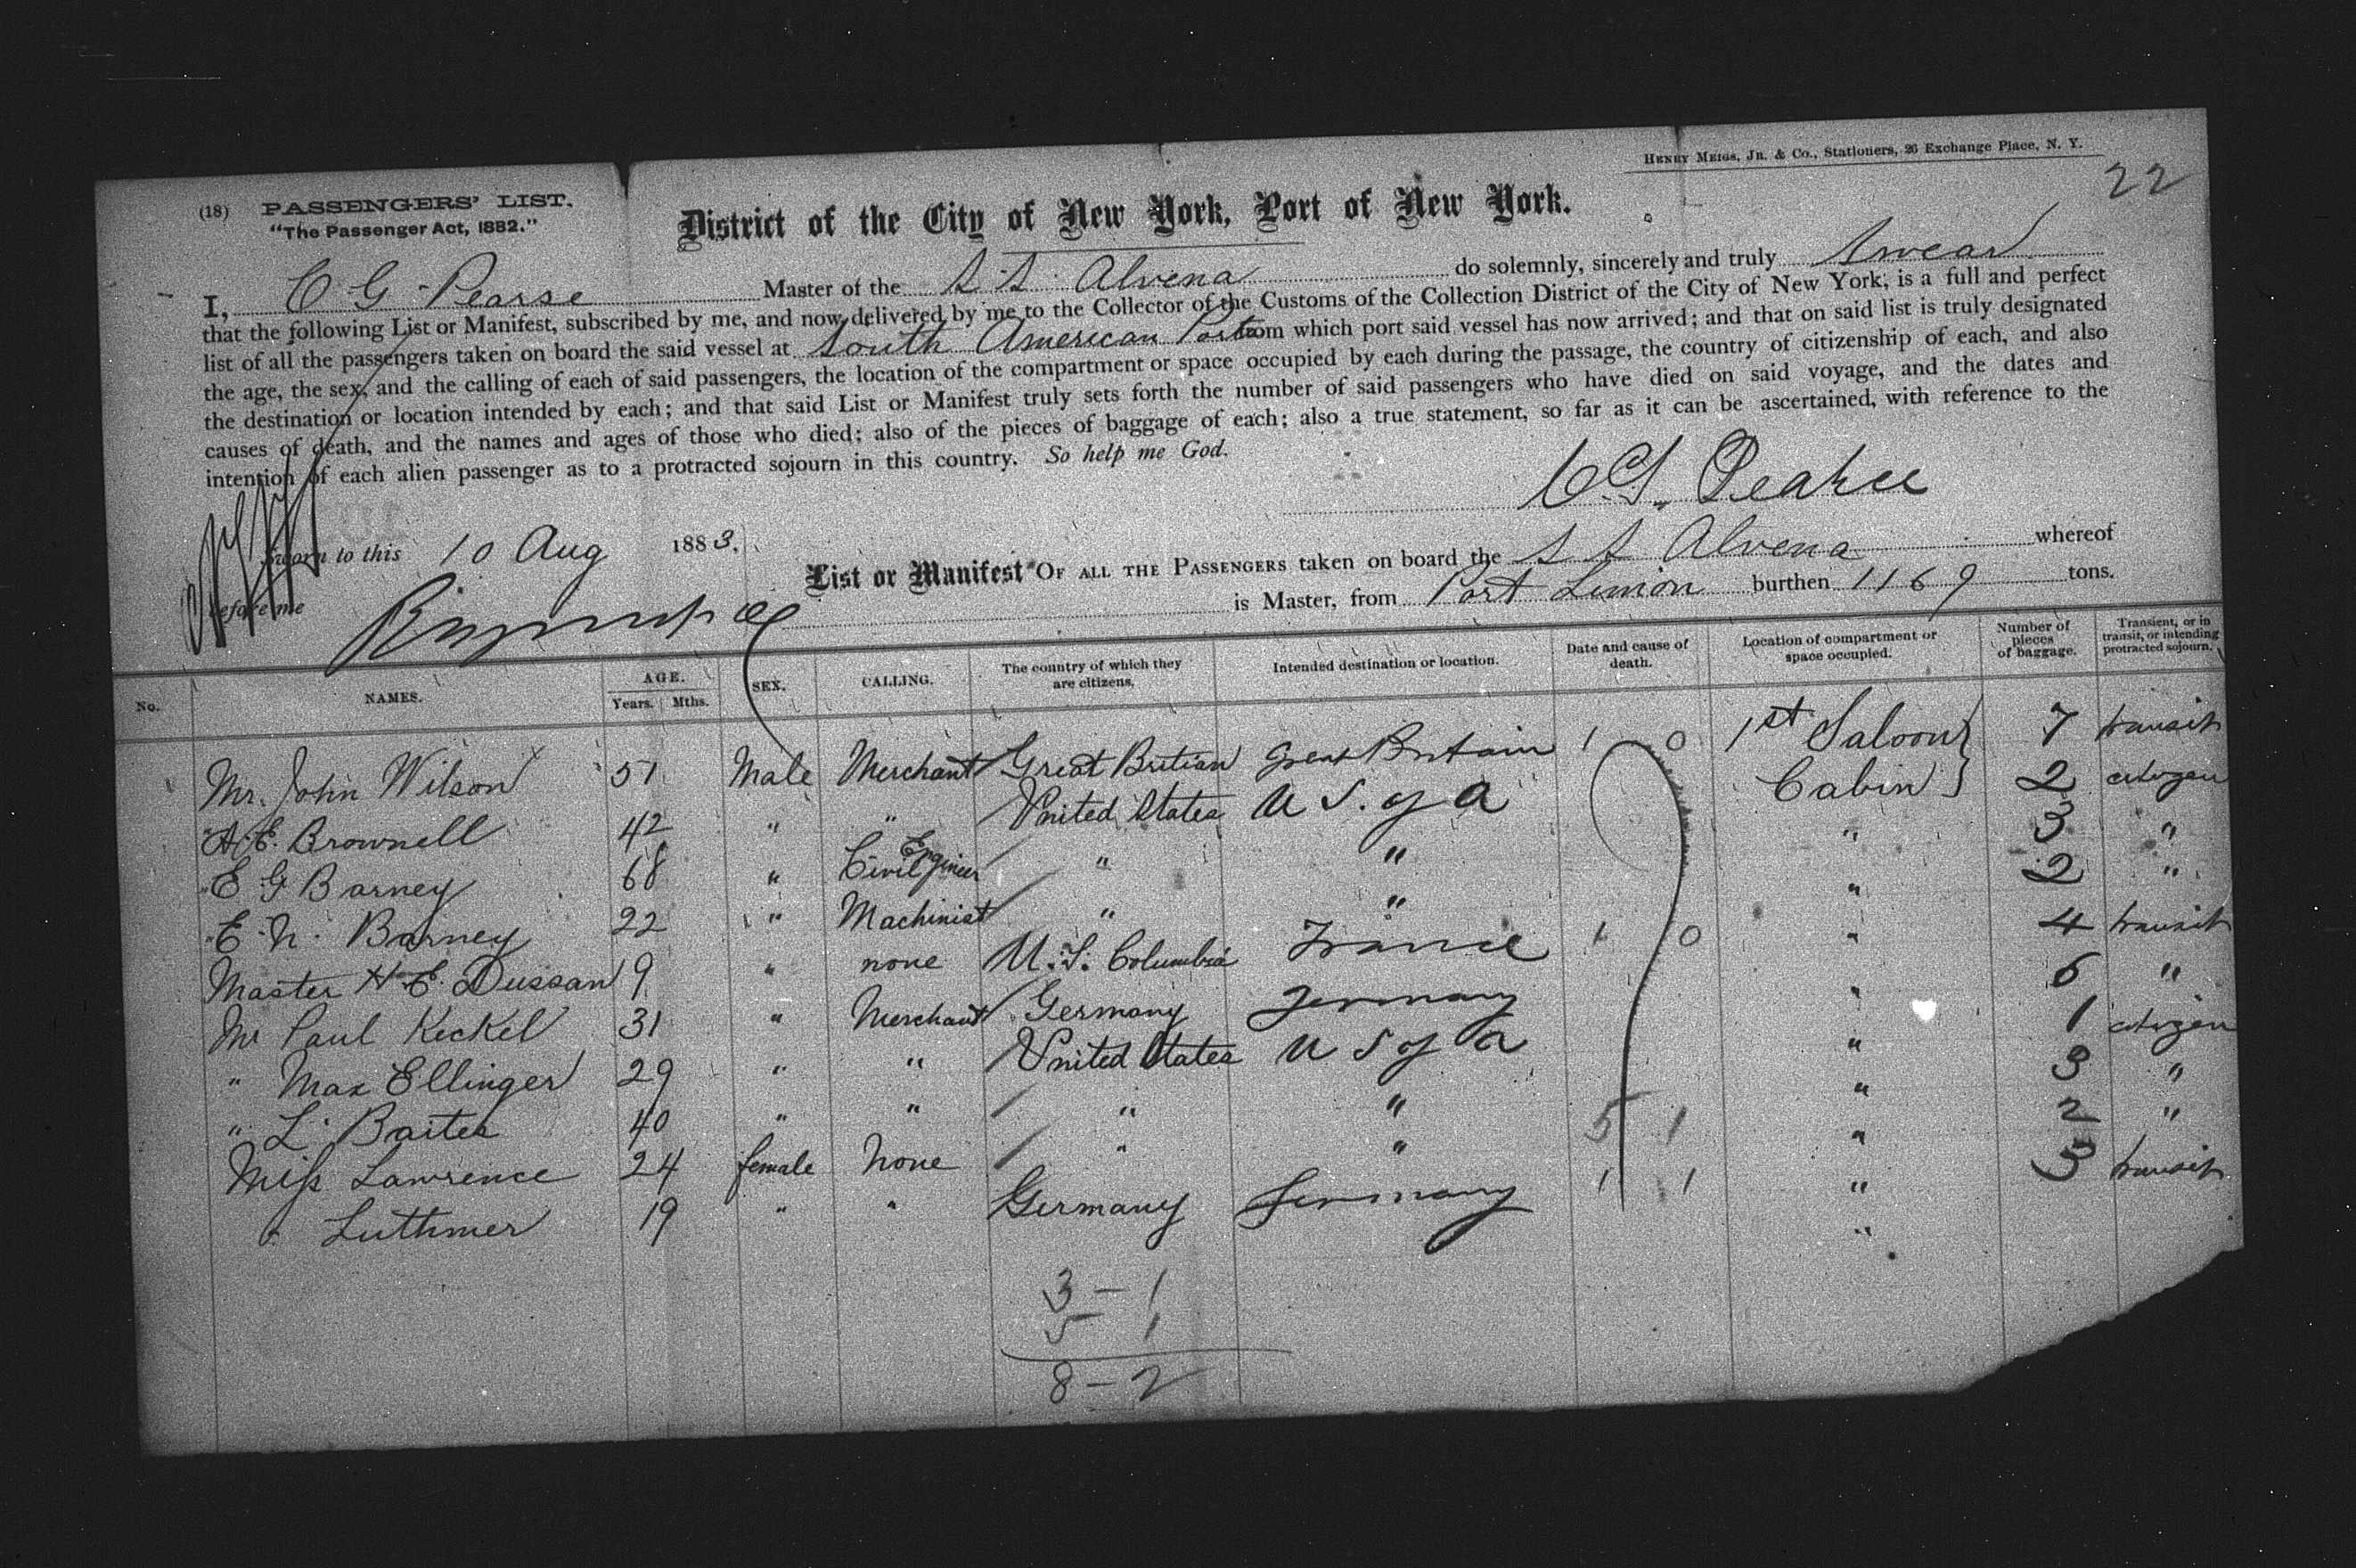 HENRY MEIGS, JR. & CO., Stationers, 26 Exchange Place, N. Y.
22
(18) PASSENGERS' LIST.
"The Passenger Act, 1882."
District of the City of New York, Port of New York.
I, C G Pearse Master of the S.S. Alvena do solemnly, sincerely and truly Swear
that the following List or Manifest, subscribed by me, and now delivered by me to the Collector of the Customs of the Collection District of the City of New York, is a full and perfect
list of all the passengers taken on board the said vessel at South American Ports from which port said vessel has now arrived; and that on said list is truly designated
the age, the sex, and the calling of each of said passengers, the location of the compartment or space occupied by each during the passage, the country of citizenship of each, and also
the destination or location intended by each; and that said List or Manifest truly sets forth the number of said passengers who have died on said voyage, and the dates and
causes of death, and the names and ages of those who died; also of the pieces of baggage of each; also a true statement, so far as it can be ascertained, with reference to the
intention of each alien passenger as to a protracted sojourn in this country. So help me God.
CG. Pearse
Sworn to this 10 Aug 1883.
before me
List or Manifest OF ALL THE PASSENGERS taken on board the S S Alvena whereof
is Master, from Port Limon burthen 1169 tons.
No. NAMES. AGE. Years. Mths. SEX. CALLING. The country of which they are citizens. Intended destination or location. Date and cause of death. Location of compartment or space occupied. Number of pieces of baggage. Transient, or in transit, or intending protracted sojourn.
Mr. John Wilson 51 Male Merchant Great Britian Great Britain 1 0 1st Saloon 7 transit
" A. E. Brownell 42 " " United States U S. of A Cabin 2 citizen
" E G Barney 68 " Civil Engineer " " " 3 "
" E. N. Barney 22 " Machinist " " " 2 "
Master H. E. Dussan 19 " none U. S. Columbia France 1 0 " 4 transit
Mr Paul Keckel 31 " Merchant Germany Germany " 6 "
" Max Ellinger 29 " " United States U S of A " 1 citizen
" L. Baites 40 " " " " 5 1 " 3 "
Miss Lawrence 24 female None " " " 2 "
" Luthmer 19 " " Germany Germany 1 1 " 3 transit
3 - 1
5 1
8 - 2